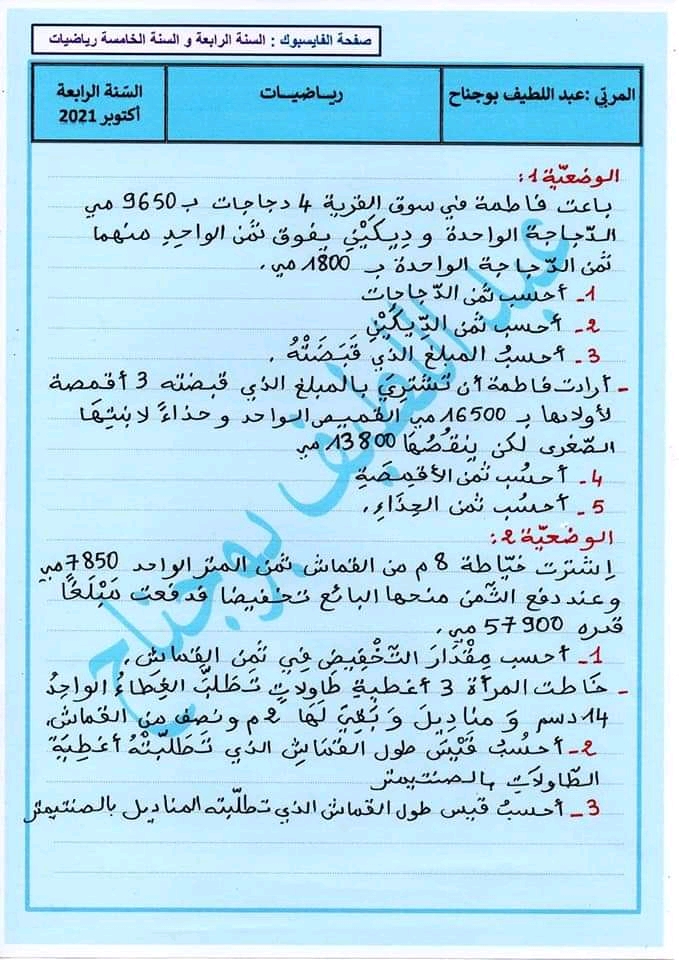 صفحة الفايسبوك : السنة الرابعة و السنة الخامسة رياضيات
المربّي :عبد اللطيف بوجناح
ريـاضيـات
السّنة الرابعة
أكتوبر 2021
الوضعيّة 1:
باعت فاطمة في سوق القرية 4 دجاجات ب 9650 مي
الدّجاجة الواحدة و دِيكَيْنِ يفوق ثمن الواحدِ منهما
ثمن الدّجاجة الواحدة ب 1800 مي.
1- أحسب ثمن الدّجاجات
2- أحسب ثمن الدِّيكَيْنِ
3- أحسبُ المبلغ الذي قَبَضَتْهُ.
- أرادت فاطمة أن تشتريَ بالمبلغ الذي قبضته 3 أقمصة
لأولادها ب 16500 مي القميص الواحد و حذاءً لابنتِهَا
الصّغرى لكن ينقُصُهَا 13800 مي
4- أحسُب ثمن الأقمِصَةِ
5- أحسُب ثمن الحِذَاءِ.
الوضعيّة 2:
اِشترت خيّاطة 8 م من القماش ثمن المتر الواحد 7850 مي
و عند دفع الثّمن منحها البائع تخفيضا فدفعت مَبْلَغًا
قدره 57900 مي.
1- أحسب مِقْدَارَ التَّخْفِيضِ فِي ثَمَنِ القُمَاشِ.
- خَاطت المرأة 3 أغطيةِ طَاوِلَاتٍ تَطَلَّبَ الغِطَاءُ الواحِدُ
14 دسم وَ مناديلَ وَ بَقِيَ لَهَا 2 م و نصف من القماش.
2- أحسُبُ قَيْسَ طول القُمَاشِ الذي تَطَلَّبَتْهُ أغطِيَةُ
الطّاولَاتِ بالصنتيمتر
3- أحسبُ قيس طول القماش الذي تطلّبته المناديل بالصنتيمتر
عبد اللطيف بوجناح